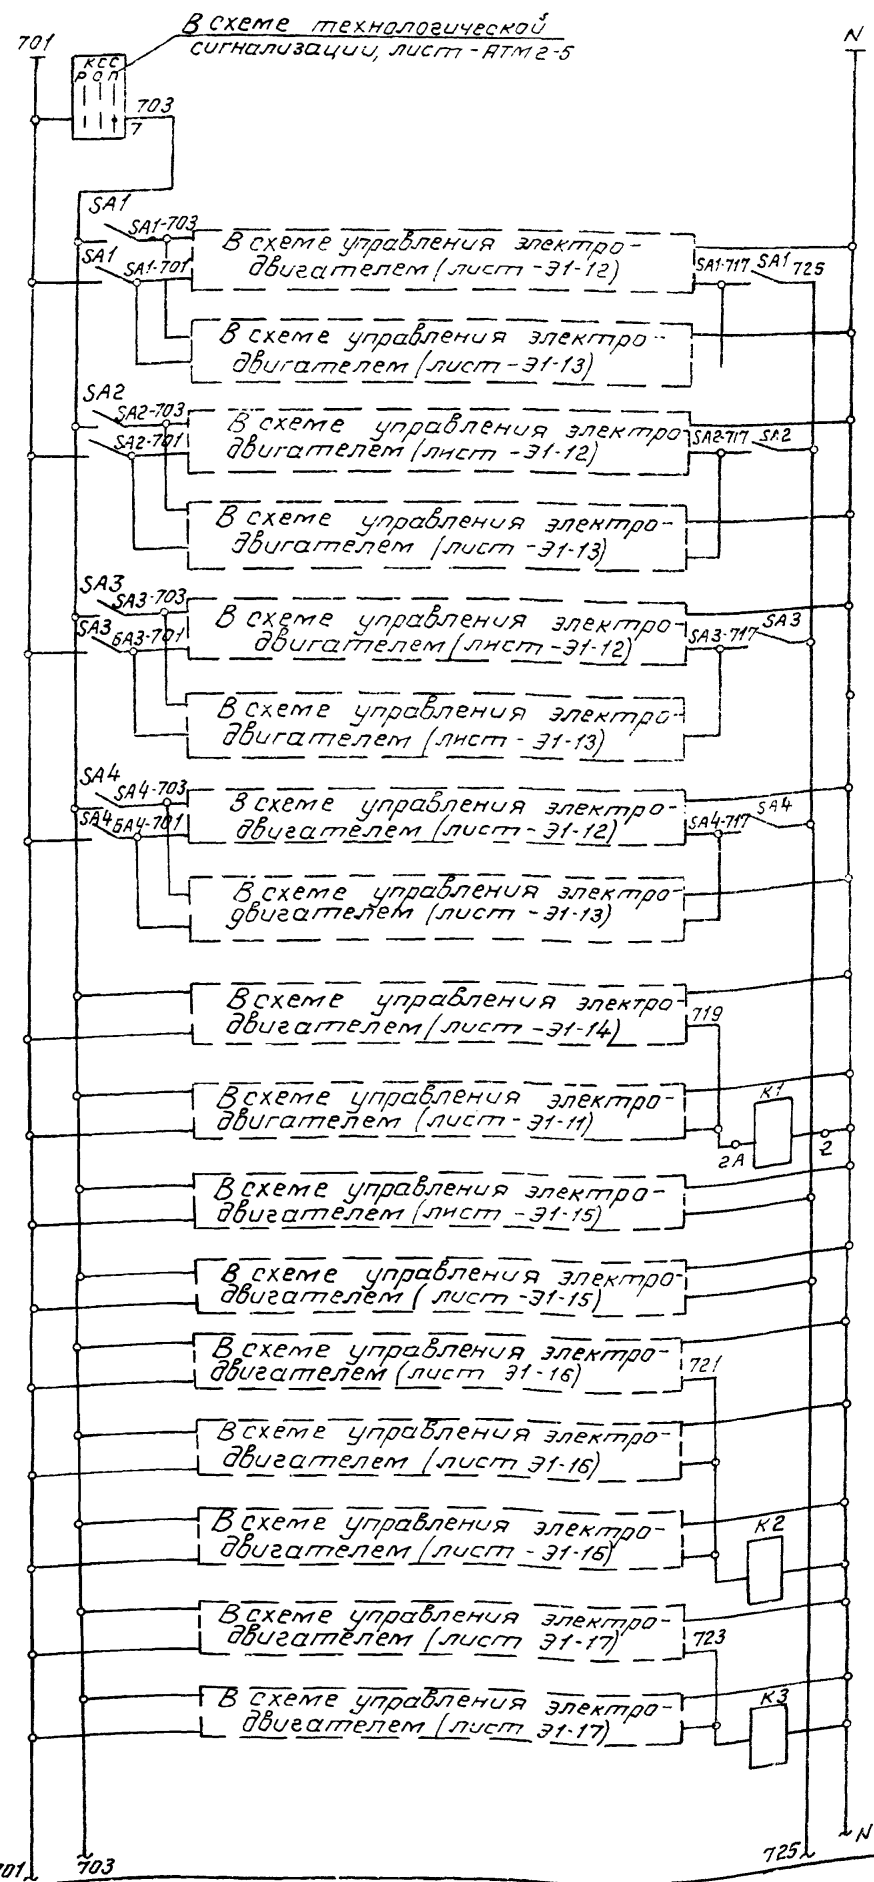 В схеме технологической
сигнализации, лист - АТМ2-5
701
N
КСС
Р О П
703
7
SA1
SA1-703
SA1
SA1-701
В схеме управления электро-
двигателем (лист -Э1-12)
SA1-717
SA1
725
В схеме управления электро-
двигателем (лист -Э1-13)
SA2
SA2-703
SA2-701
В схеме управления электро-
двигателем (лист -Э1-12)
SA2-717
SA2
В схеме управления электро-
двигателем (лист -Э1-13)
SA3
SA3-703
SA3
БА3-701
В схеме управления электро-
двигателем (лист -Э1-12)
SA3-717
SA3
В схеме управления электро-
двигателем (лист - Э1-13)
SA4
SA4-703
SA4
БА4-701
В схеме управления электро-
двигателем (лист -Э1-12)
SA4-717
SA4
В схеме управления электро-
двигателем (лист -Э1-13)
В схеме управления электро-
двигателем (лист -Э1-14)
719
В схеме управления электро-
двигателем (лист -Э1-11)
К1
2А
2
В схеме управления электро-
двигателем (лист -Э1-15)
В схеме управления электро-
двигателем (лист -Э1-15)
В схеме управления электро-
двигателем (лист Э1-16)
721
В схеме управления электро-
двигателем (лист Э1-16)
В схеме управления электро-
двигателем (лист - Э1-16)
К2
В схеме управления электро-
двигателем (лист Э1-17)
723
В схеме управления электро-
двигателем (лист Э1-17)
К3
701
703
725
N